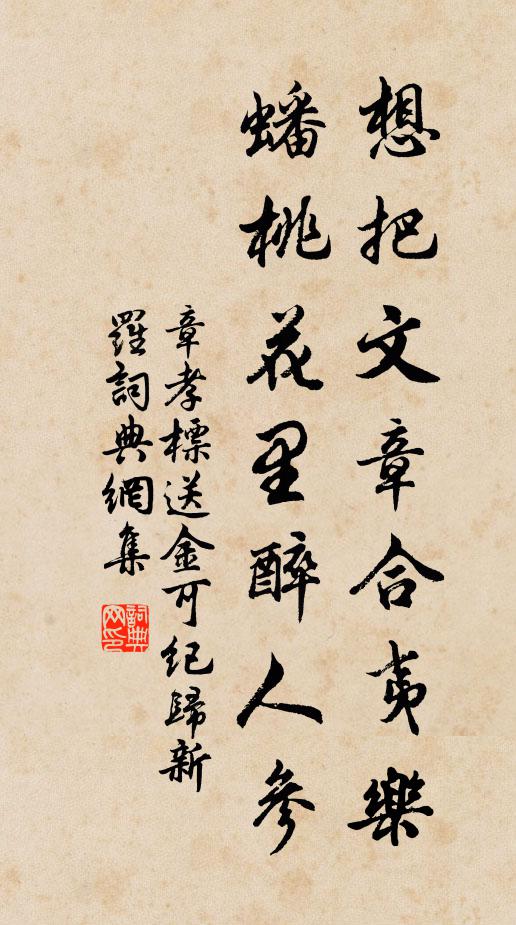 想把文章合夷樂
蟠桃花里醉人參
章孝標送金可紀歸新
羅詞典網集
詞典
网印